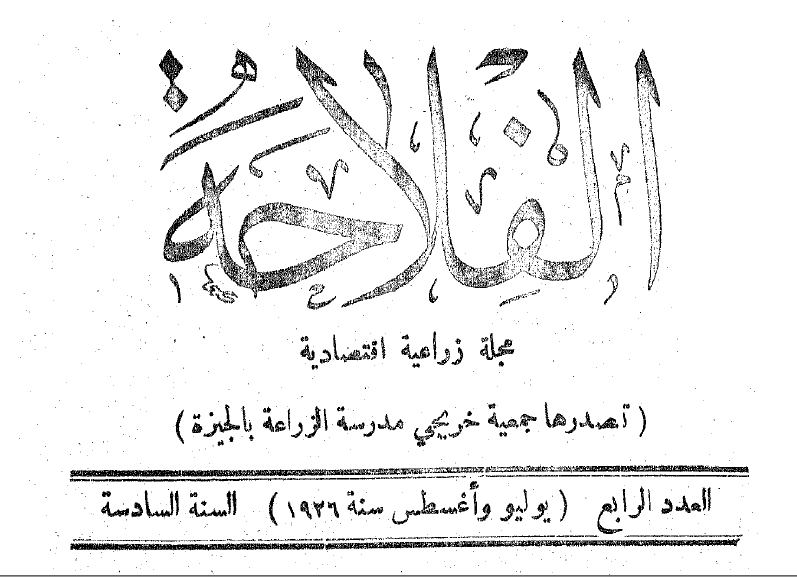 الفلاحة
مجلة زراعية اقتصادية
( تصدرها جمعية خريجي مدرسة الزراعة بالجيزة )
العدد الرابع ( يوليو وأغسطس سنة ١٩٢٦ ) السنة السادسة